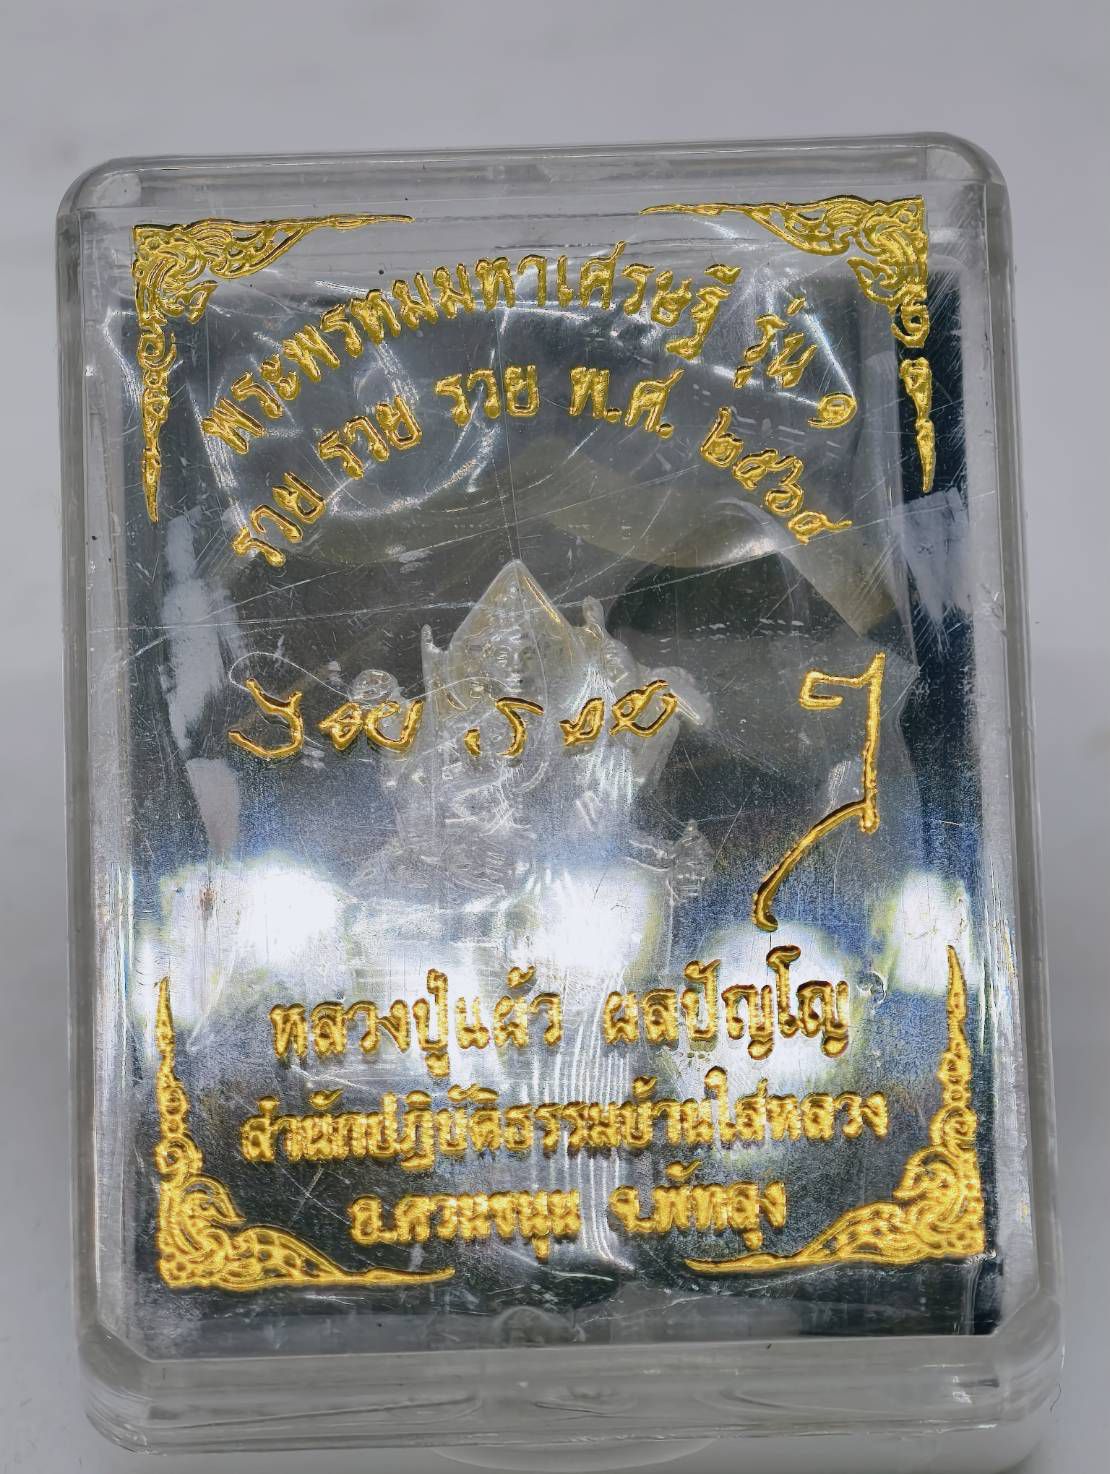 พระพรหมมหาเศรษฐี รุ่น ๑
รวย รวย รวย พ.ศ. ๒๕๖๔
รวย รวย
หลวงปู่แล้ว ผลปัญโญ
สำนักปฏิบัติธรรมบ้านใสหลวง
อ.ควนขนุน จ.พัทลุง